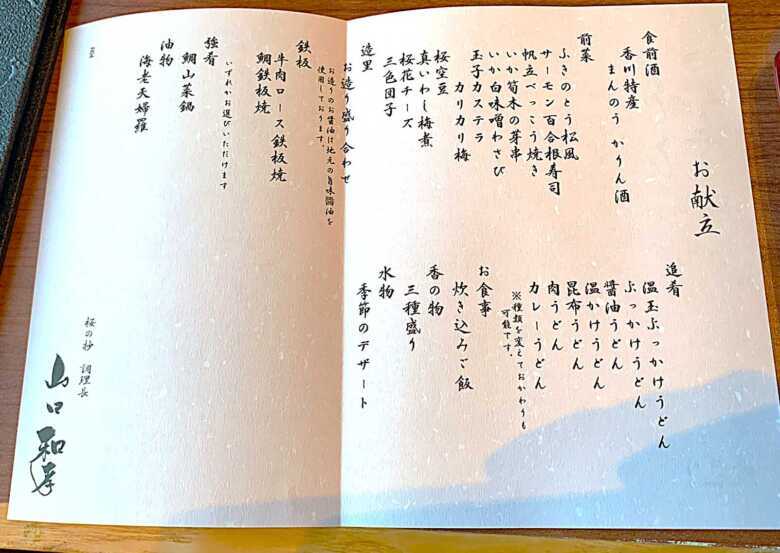 お献立
食前酒
香川特産
まんのう かりん酒
前菜
ふきのとう松風
サーモン百合根寿司
帆立べっこう焼き
いか筍木の芽串
いか白味噌わさび
玉子カステラ
カリカリ梅
桜空豆
真いわし梅煮
桜花チーズ
三色団子
造里
お造り盛り合わせ
お造りのお醤油は地元の旨味醤油を
使用しております。
鉄板
牛肉ロース鉄板焼
鯛鉄板焼
いずれかお選びいただけます
強肴
鯛山菜鍋
油物
海老天婦羅
追肴
温玉ぶっかけうどん
ぶっかけうどん
醤油うどん
温かけうどん
昆布うどん
肉うどん
カレーうどん
※種類を変えておかわりも
可能です。
お食事
炊き込みご飯
香の物
三種盛り
水物
季節のデザート
桜の抄 調理長
山口和孝